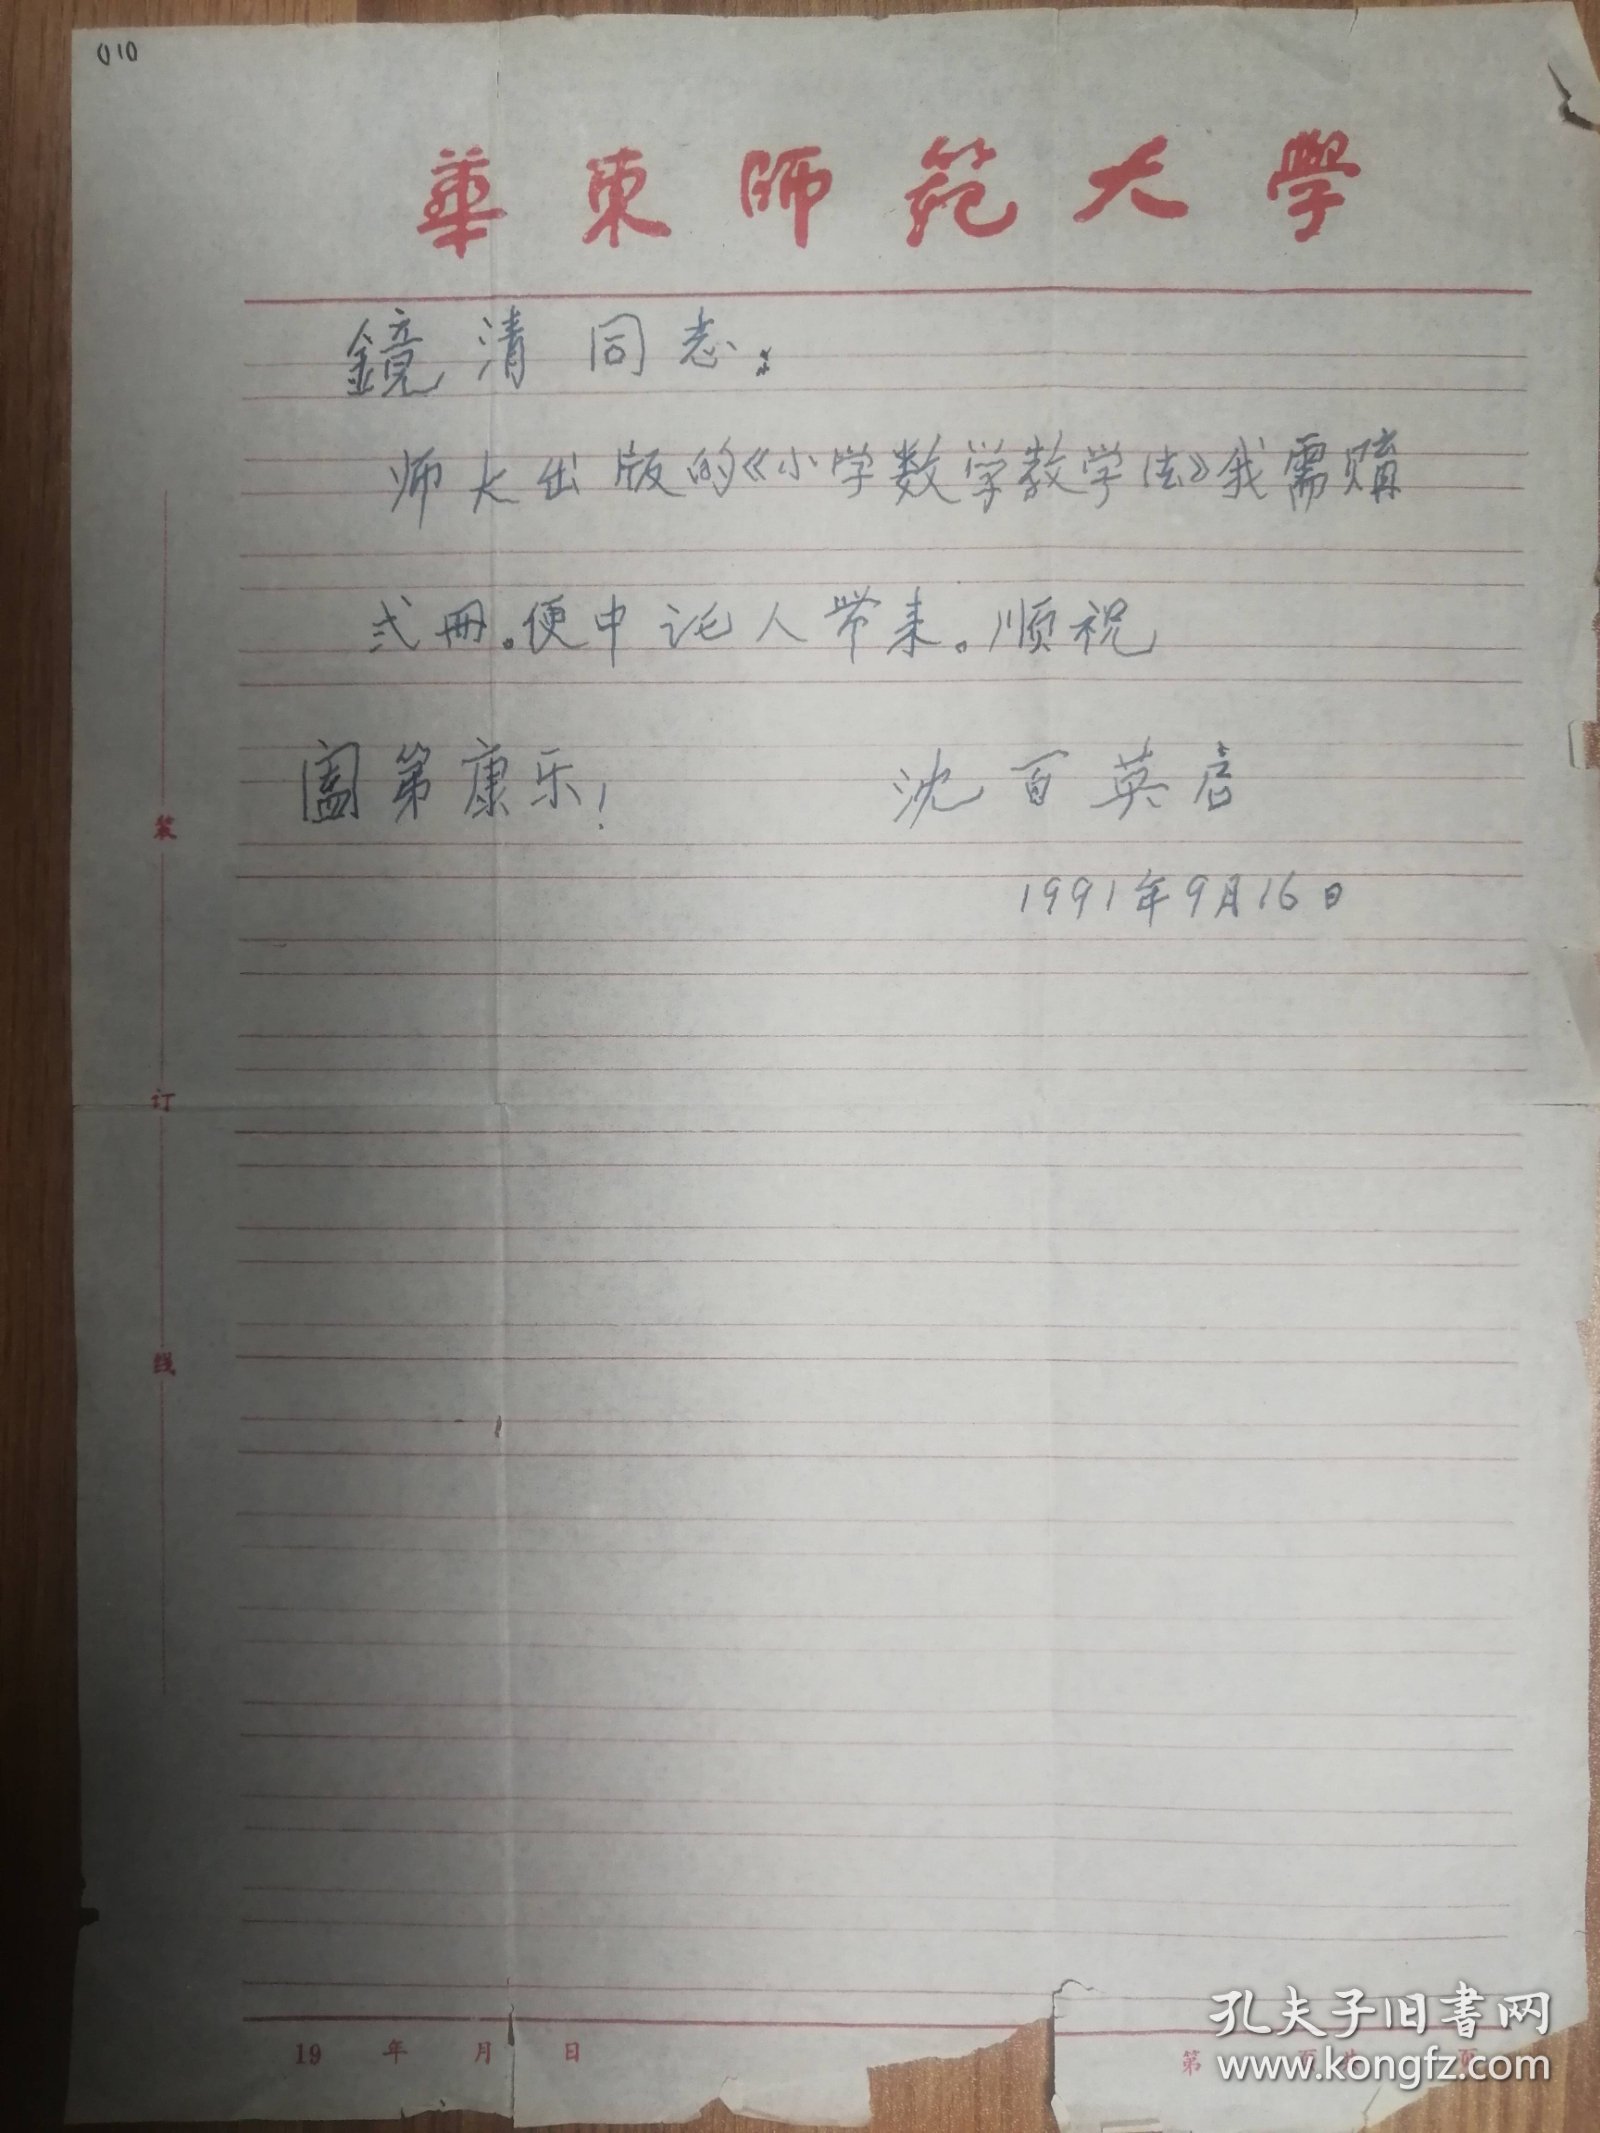 010
華東师范大學
鏡清同志：
师大出版的《小学数学教学法》我需購
弍册。便中讬人带来。顺祝
阖第康乐！ 沈百英启
1991年9月16日
装
订
线
19 年 月 日
第 页共 页
孔夫子旧书网
www.kongfz.com